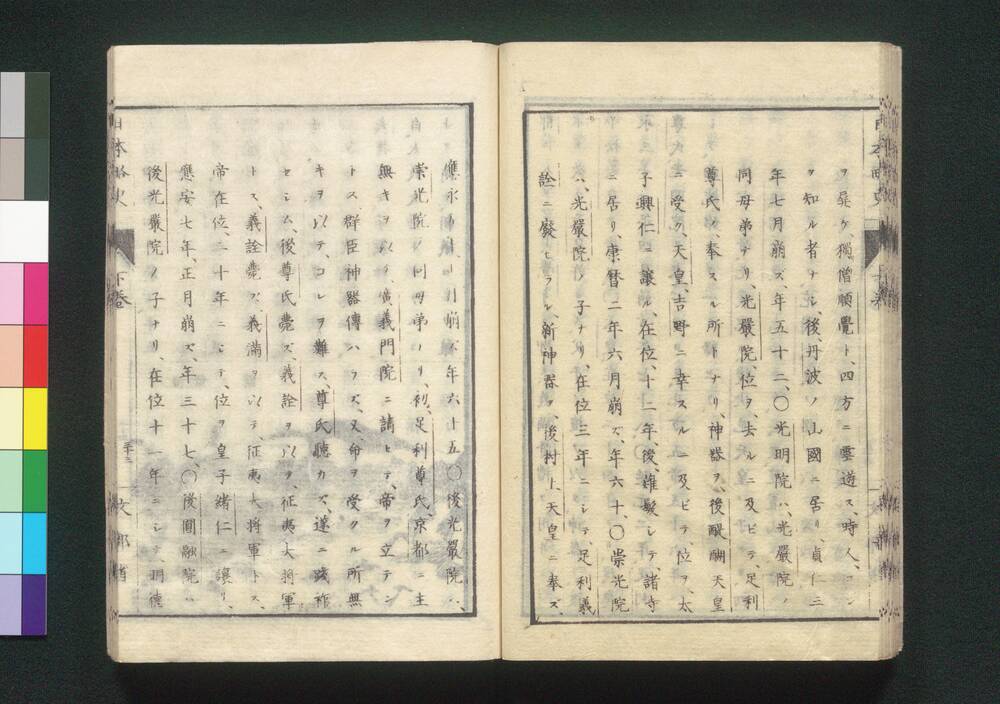 ヲ具ケ獨僧順覺ト、四方ニ雲遊ス、時人、コレ
ヲ知ル者ナシ、後、丹波ノ山國ニ居リ、貞仁三
年七月崩ズ、年五十二、〇光明院ハ、光嚴院ノ
同母弟ナリ、光嚴院、位ヲ去ルニ及ビテ、足利
尊氏ノ奉スル所トナリ、神器ヲ、後醍醐天皇
ニ受ク、天皇、吉野ニ幸スルニ及ビテ、位ヲ、太
子興仁ニ讓ル、在位、十二年、後、薙髮シテ、諸寺
ニ居リ、康暦二年六月崩ズ、年六十、〇崇光院
ハ、光嚴院ノ子ナリ、在位三年ニシテ、足利義
詮ニ廢セラル、新神器ヲ、後村上天皇ニ奉ズ、
應永 崩ズ年六十五〇後光嚴院ハ、
崇光院ノ同母弟ナリ、初、足利尊氏、京都ニ主
無キヲ以テ、廣義門院ニ請ヒテ、帝ヲ立テン
トス、群臣神器傳ハラズ、又、命ヲ受クル所無
キヲ以テ、コレヲ難ス、尊氏聽カズ、遂ニ踐祚
セシム、後尊氏薨ズ、義詮ヲ以テ、征夷大將軍
トス、義詮薨ズ、義滿ヲ以テ、征夷大将軍トス、
帝在位、二十年ニシテ、位ヲ皇子緒仁ニ讓リ、
應安七年、正月崩ズ、年三十七、〇後圓融院ハ
後光嚴院ノ子ナリ、在位十一年ニシテ、明德
日本略史
下卷
文部省